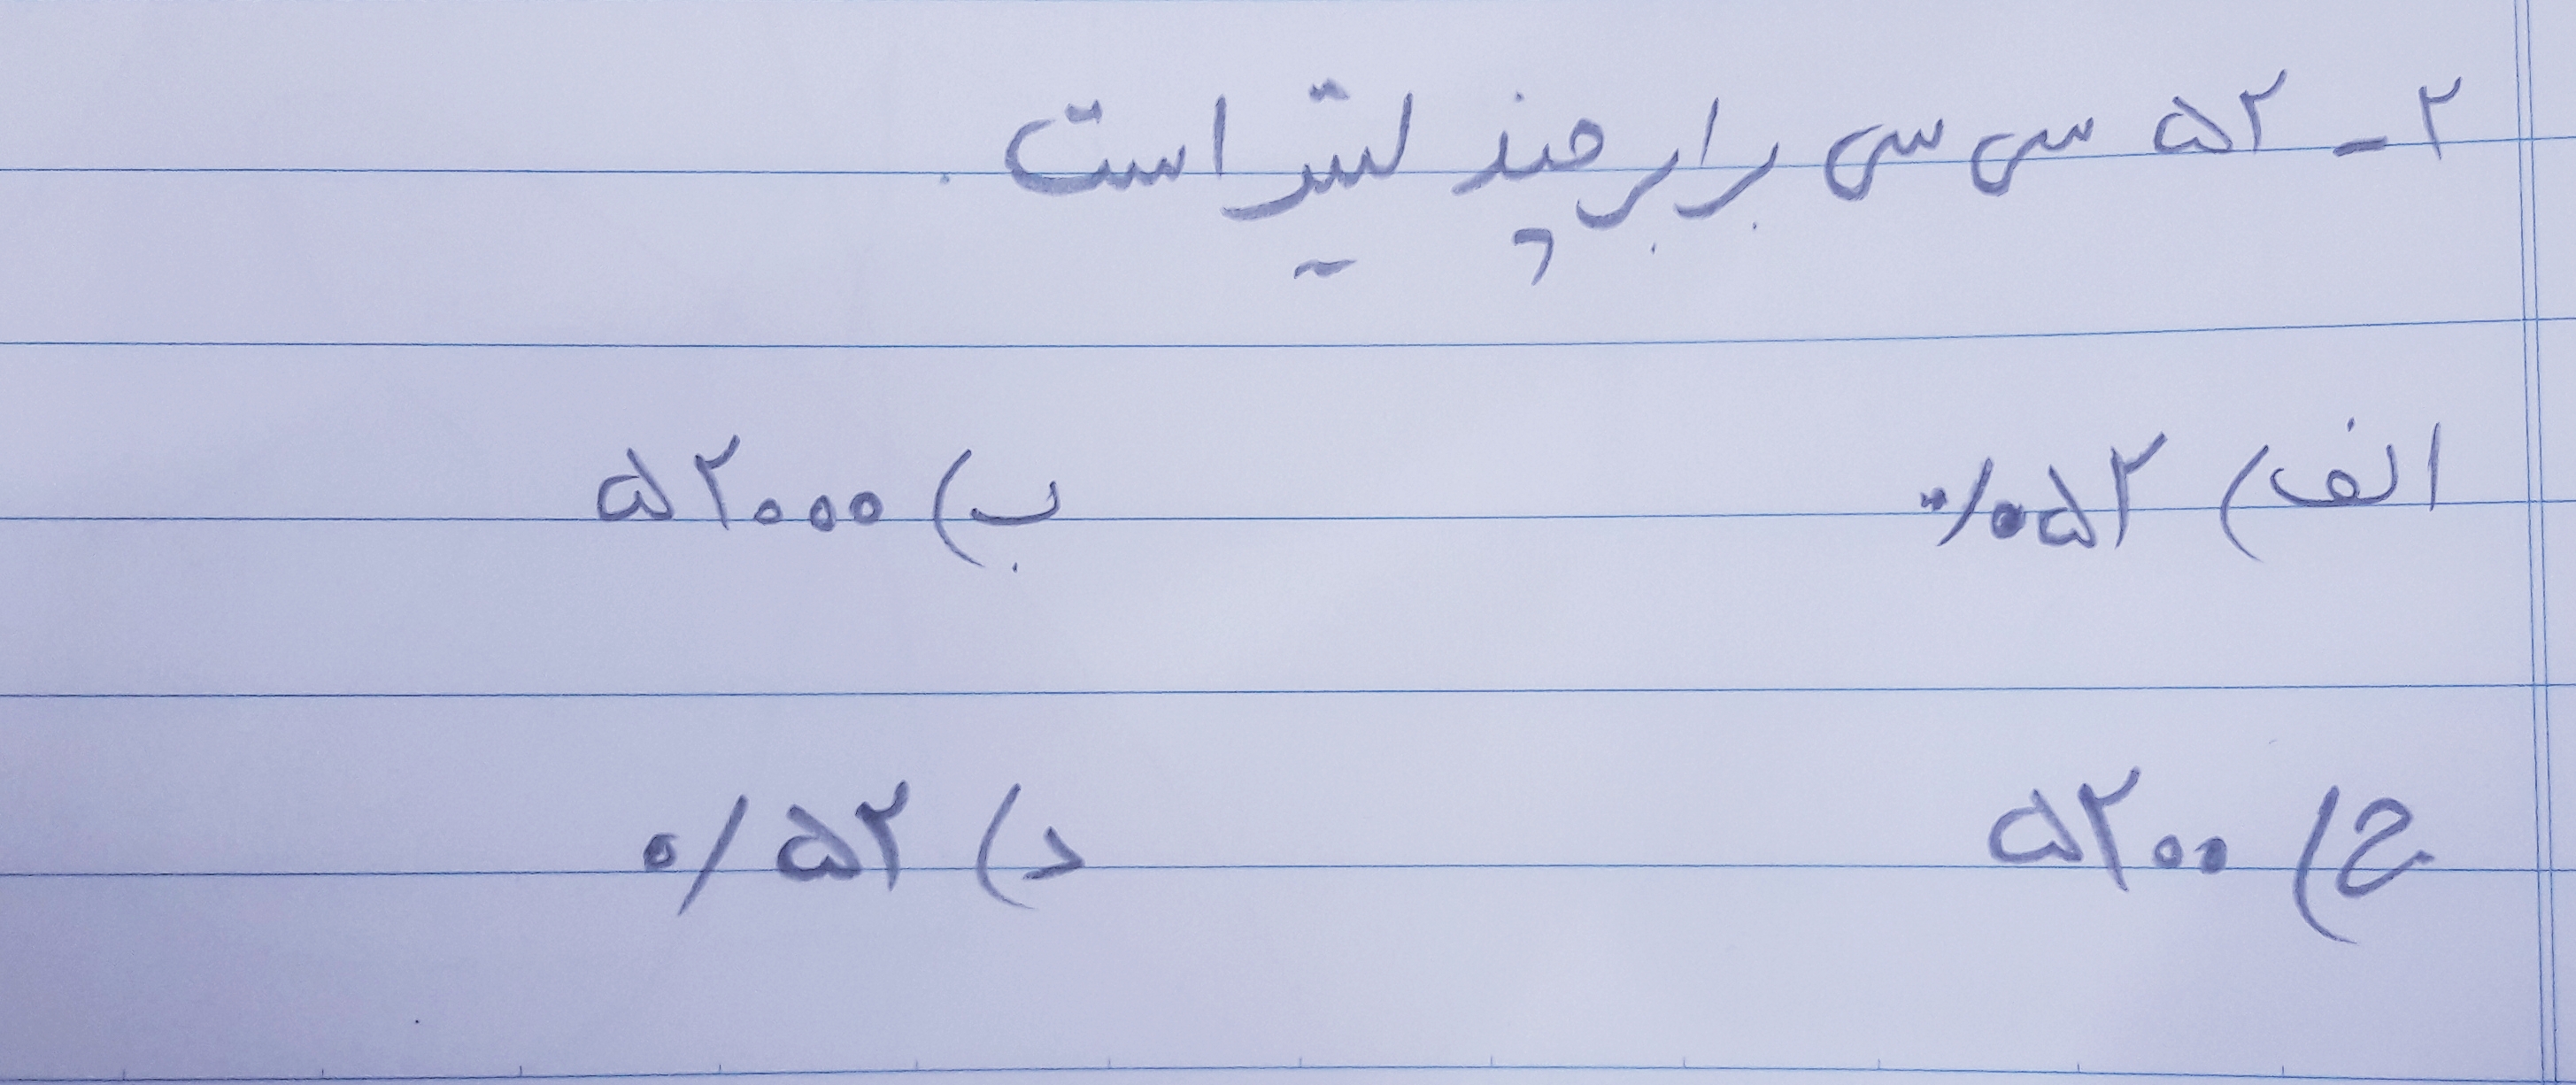 ۲ - ۵۲ سی سی برابر چند لیتر است .
الف) ۰/۰۵۲ ب) ۵۲۰۰۰
ج) ۵۲۰۰ د) ۰/۵۲